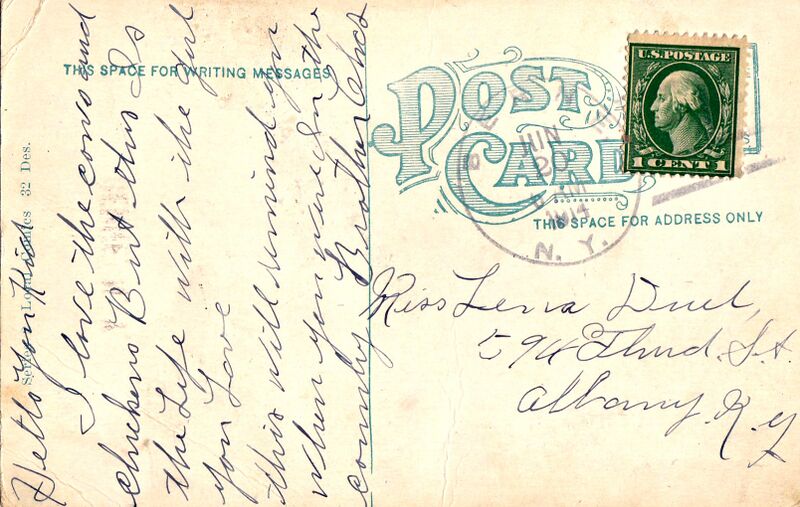 THIS SPACE FOR WRITING MESSAGES
POST
CARD
THIS SPACE FOR ADDRESS ONLY
U.S. POSTAGE
1 CENT 1
JUN
2
AM
1914
N. Y.
Hello you
I love the cows and
chickens But this Is
the Life with the girl
you Love
this will remind you
when you were In the
country Brother Chas
Miss Lena Duel,
594 Third St.
Albany N.Y
32 Des.